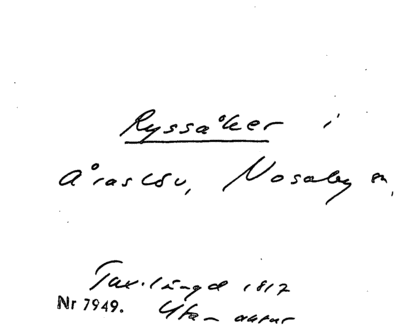 Ryssåker i
Åraslöv, Nosaby sn,
Tax.längd 1817
Nr 7949. Utan